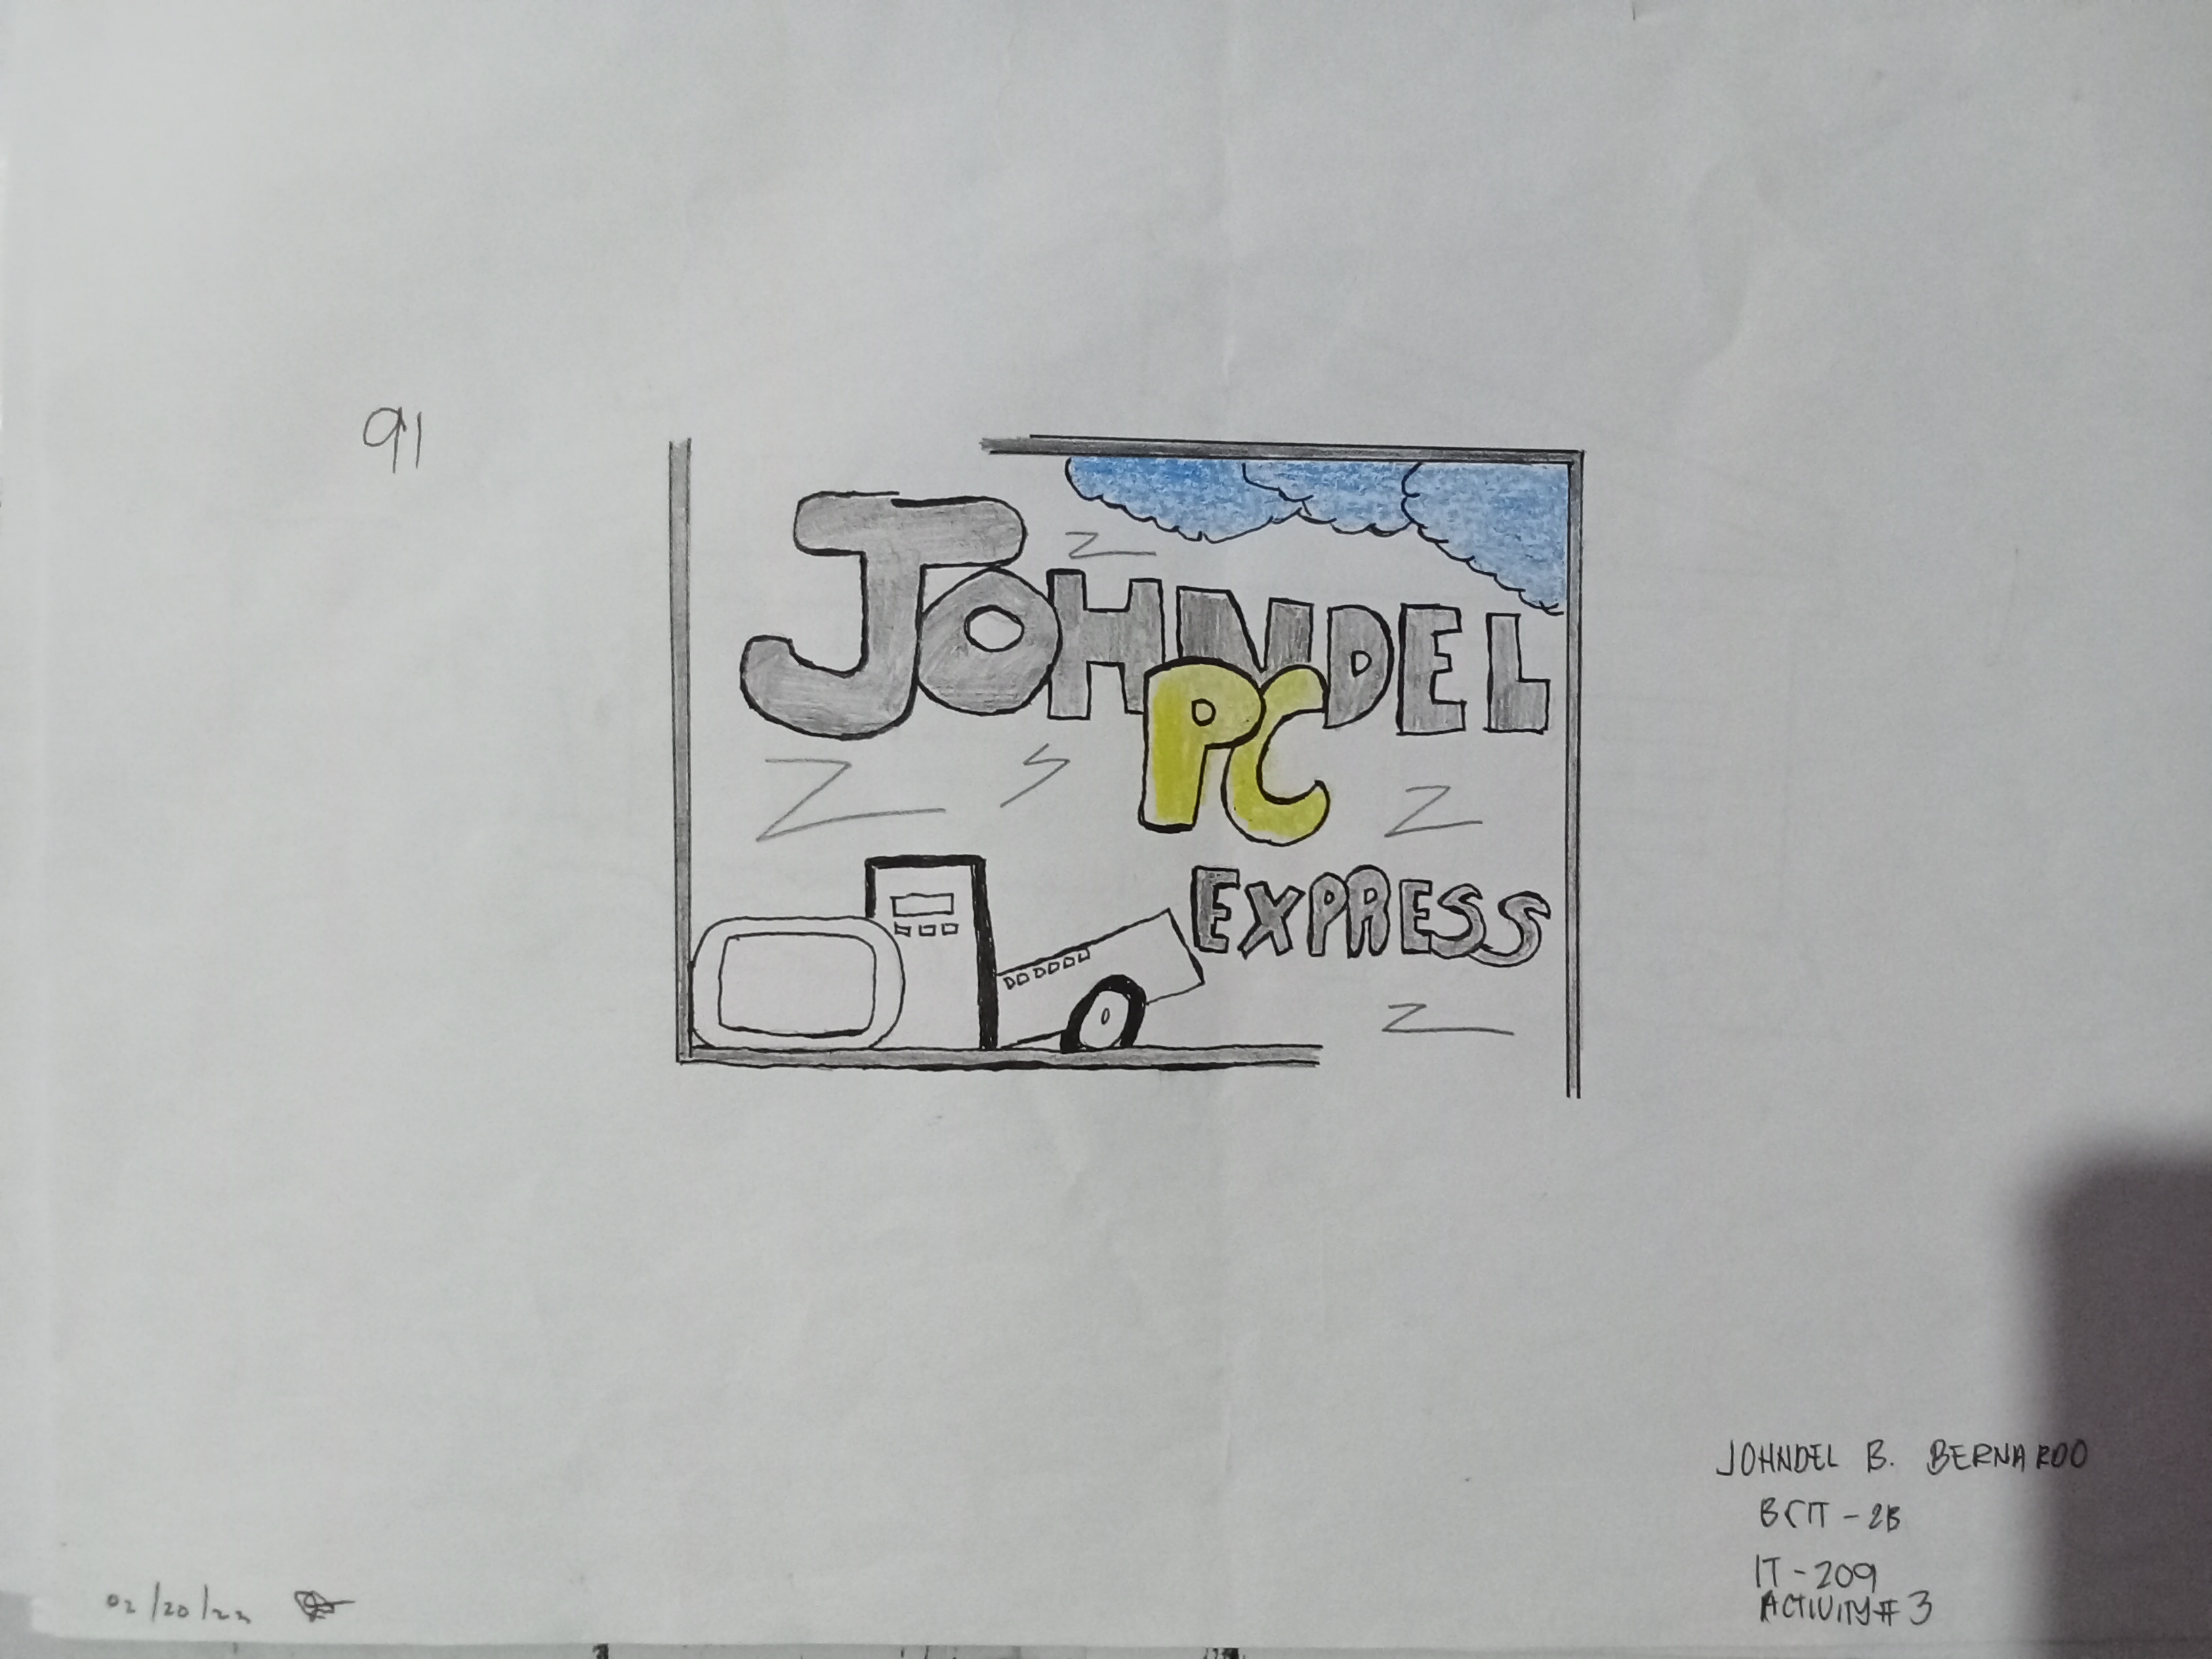 91
JOHNDEL
PC
EXPRESS
JOHNDEL B. BERNARDO
BCIT - 2B
IT - 209
ACTIVITY # 3
02/20/22